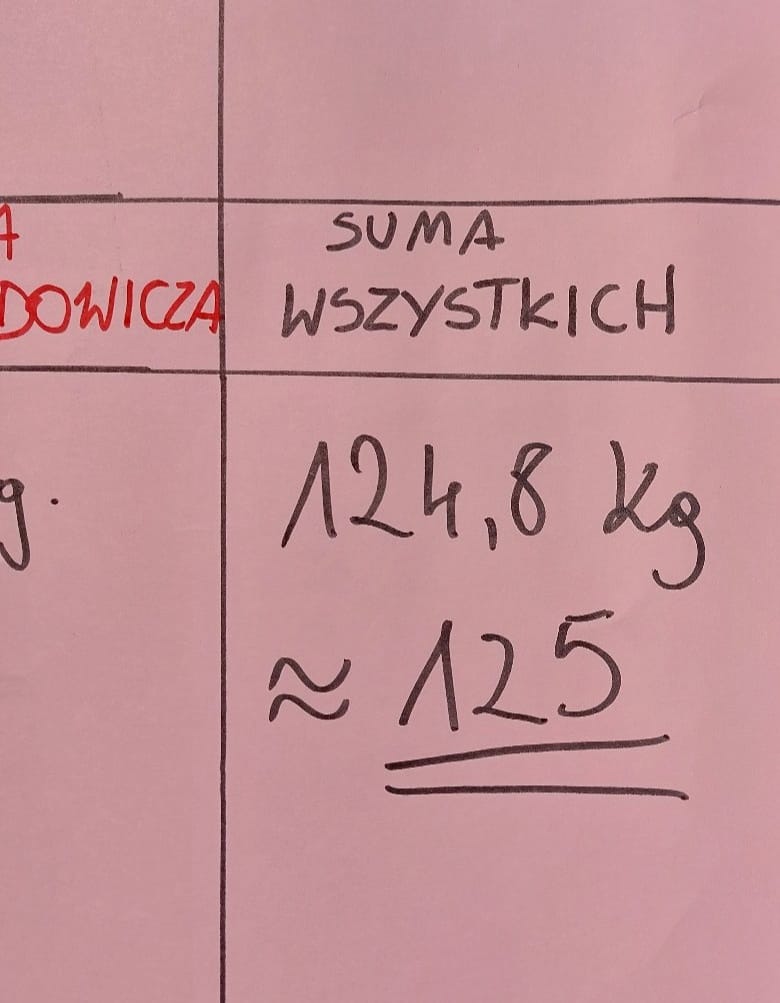 A
DOWICZA
SUMA
WSZYSTKICH
g.
124,8 kg
≈ 125